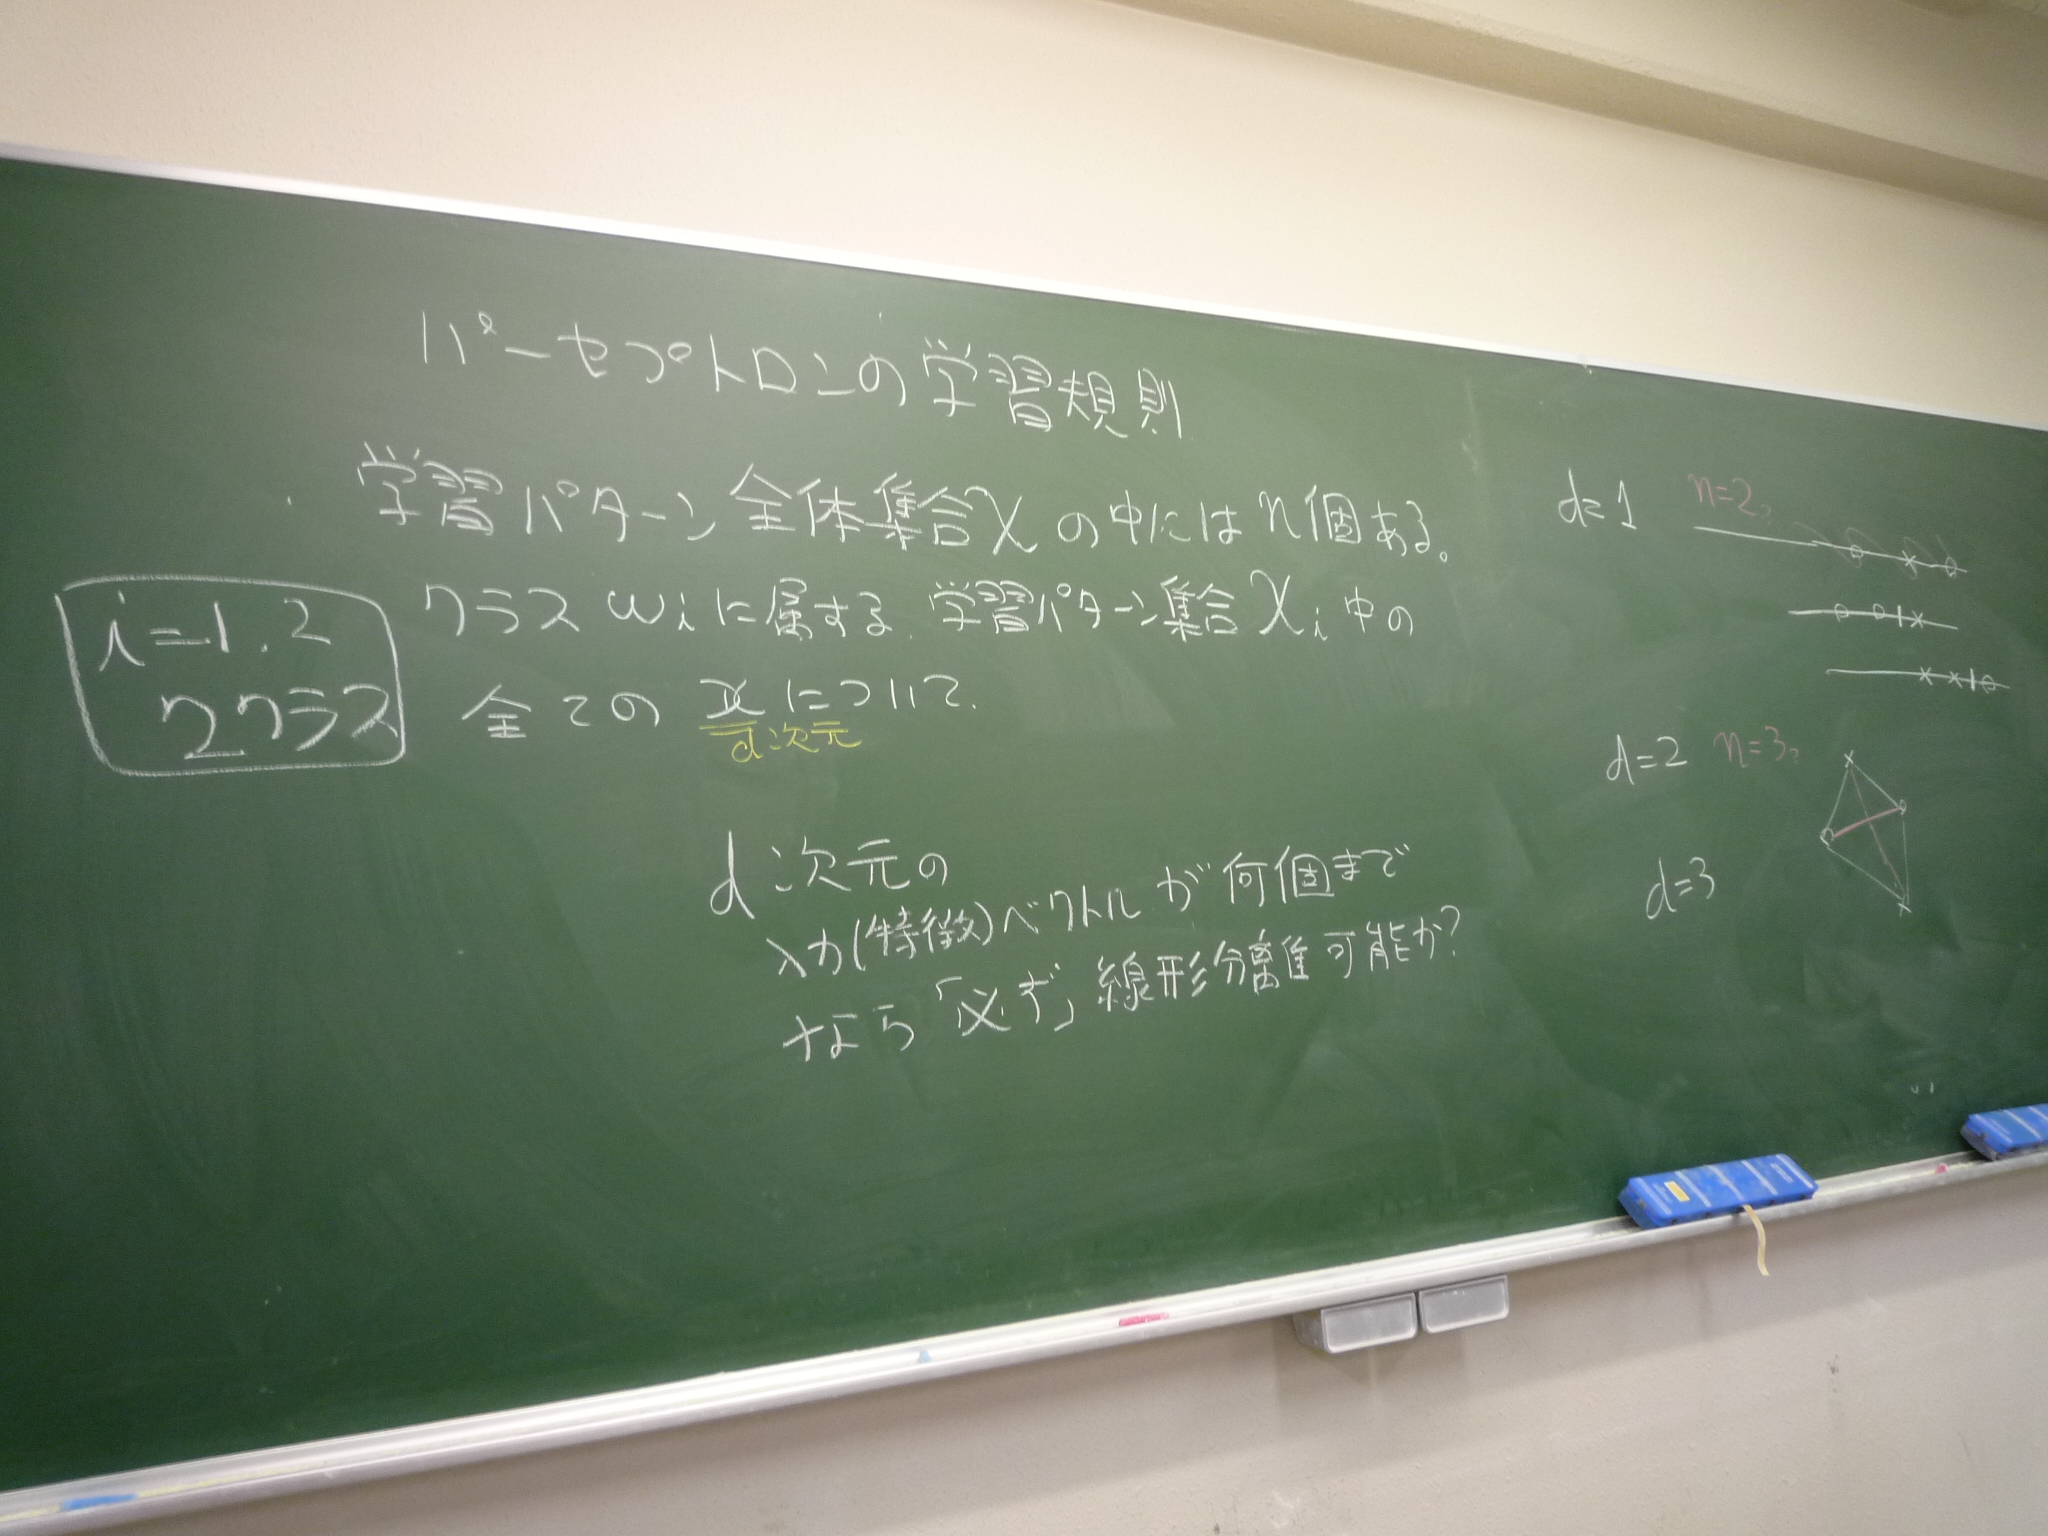 パーセプトロンの学習規則
学習パターン全体集合χの中にはn個ある。
クラスωiに属する学習パターン集合χi中の
全てのxについて
d次元
i=1,2
2クラス
d次元の
入力(特徴)ベクトルが何個まで
なら「必ず」線形分離可能か?
d=1 n=2
d=2 n=3
d=3